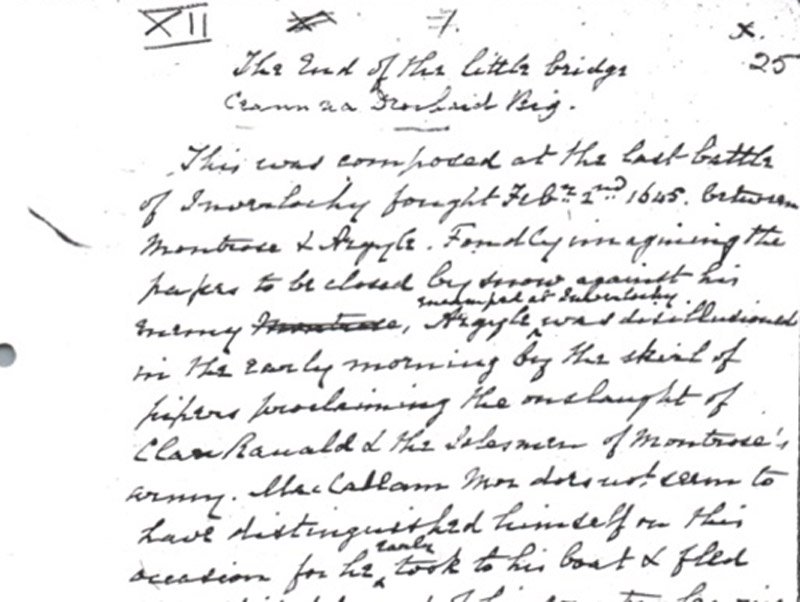 XII 7. x.
25
The End of the little bridge
Ceann na Drochaid Big.
This was composed at the last battle
of Inverlochy fought Feb. 2nd 1645. between
Montrose & Argyle. Fondly imagining the
passes to be closed by snow against his
encamped at Inverlochy
enemy Montrose, Argyle was disillusioned
in the early morning by the skirl of
pipers proclaiming the onslaught of
Clan Ranald & the Islesmen of Montrose's
army. MacCallam Mor does not seem to
have distinguished himself on this
early
occasion for he took to his boat & fled